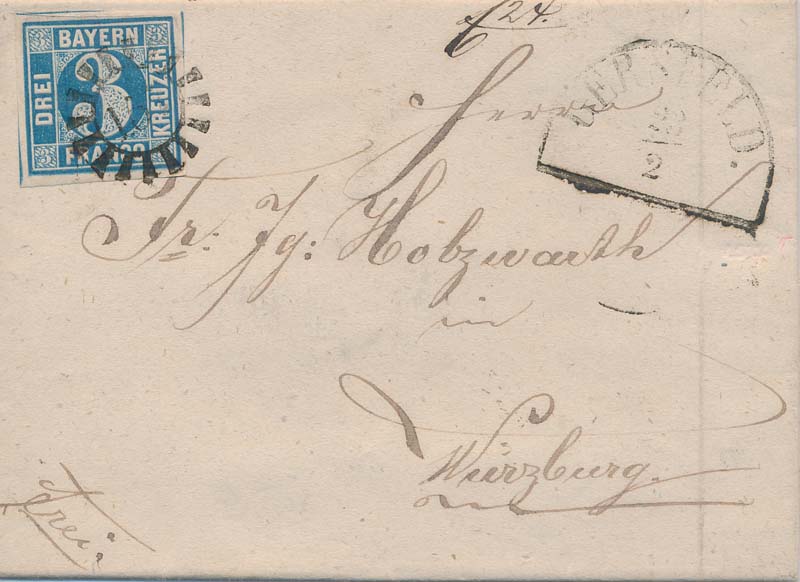 BAYERN
DREI
3
KREUZER
FRANCO
124.
Herrn
Fr: Jg: Holzwarth
in
Würzburg.
GERSFELD.
2
frei.